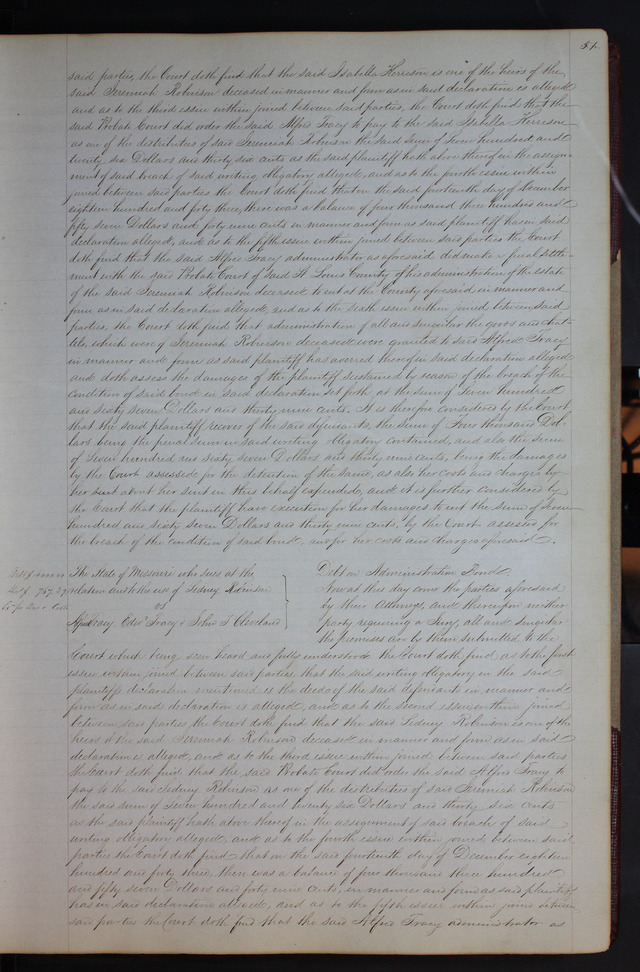 51.
said parties, the Court doth find that the said Isabella Herrison is one of the heirs of the
said Jeremiah Robinson deceased in manner and form as in said declaration is alleged
and as to the third issue within joined between said parties, the Court doth find that the
said Probate Court did order the said Alfred Tracy to pay to the said Isabella Herrison
as one of the distributees of said Jeremiah Robinson the said sum of Seven hundred and
twenty six Dollars and thirty six cents as the said plaintiff hath above thereof in the assign-
ment of said breach of said writing obligatory alleged, and as to the fourth issue within
joined between said parties the Court doth find that on the said fourteenth day of December
eighteen hundred and forty three, there was a balance of four thousand three hundred and
fifty seven Dollars and forty nine cents in manner and form as said plaintiff has in said
declaration alleged, and as to the fifth issue within joined between said parties the Court
doth find that the said Alfred Tracy administrator as aforesaid did make a final settle-
ment with the said Probate Court of Said St Louis County of his administration of the estate
of the said Jeremiah Robinson deceased to wit at the County aforesaid in manner and
form as in said declaration alleged, and as to the sixth issue within joined between said
parties, the Court doth find that administration of all and singular the goods and chat-
tels, which were of Jeremiah Robinson deceased were granted to said Alfred Tracy
in manner and form as said plaintiff has averred thereof in said declaration alleged
and doth assess the damages of the plaintiff sustained by reason of the breach of the
condition of said bond in said declaration set forth at the sum of Seven hundred
and sixty seven Dollars and thirty nine cents. It is therefore considered by the Court
that the said plaintiff recover of the said defendants, the sum of Four thousand Dol-
lars being the penal sum in said writing obligatory contained, and also the sum
of Seven hundred and sixty seven Dollars and thirty nine cents, being the damages
by the Court assessed for the detention of the same, as also her costs and charges by
her about her suit in this behalf expended, and it is further considered by
the Court that the plaintiff have execution for her damages to wit the sum of Seven
hundred and sixty seven Dollars and thirty nine cents, by the Court assessed for
the breach of the condition of said bond, and for her costs and charges aforesaid.
The State of Missouri who sues at the
relation and to the use of Sidney Robinson
vs
Alfd Tracy, Edwd Tracy & John T Cleveland
Debt on Administration Bond.
Now at this day come the parties aforesaid
by their Attorneys, and thereupon neither
party requiring a Jury, all and singular
the premises are by them submitted to the
Court which being seen heard and fully understood the Court doth find, as to the first
issue within joined between said parties, that the said writing obligatory in the said
plaintiffs declaration mentioned is the deed of the said defendants in manner and
form as in said declaration is alleged, and as to the second issue within joined
between said parties, the Court doth find that the said Sidney Robinson is one of the
heirs of the said Jeremiah Robinson deceased in manner and form as in said
declaration alleged, and as to the third issue within joined between said parties
the Court doth find that the said Probate Court did order the said Alfred Tracy to
pay to the said Sidney Robinson as one of the distributees of said Jeremiah Robinson
the said sum of Seven hundred and twenty six Dollars and thirty six cents
as the said plaintiff hath above thereof in the assignment of said breach of said
writing obligatory alleged, and as to the fourth issue within joined between said
parties the Court doth find that on the said fourteenth day of December eighteen
hundred and forty three, there was a balance of four thousand three hundred
and fifty seven Dollars and forty nine cents, in manner and form as said plaintiff
has in said declaration alleged, and as to the fifth issue within joined between
said parties the Court doth find that the said Alfred Tracy administrator as